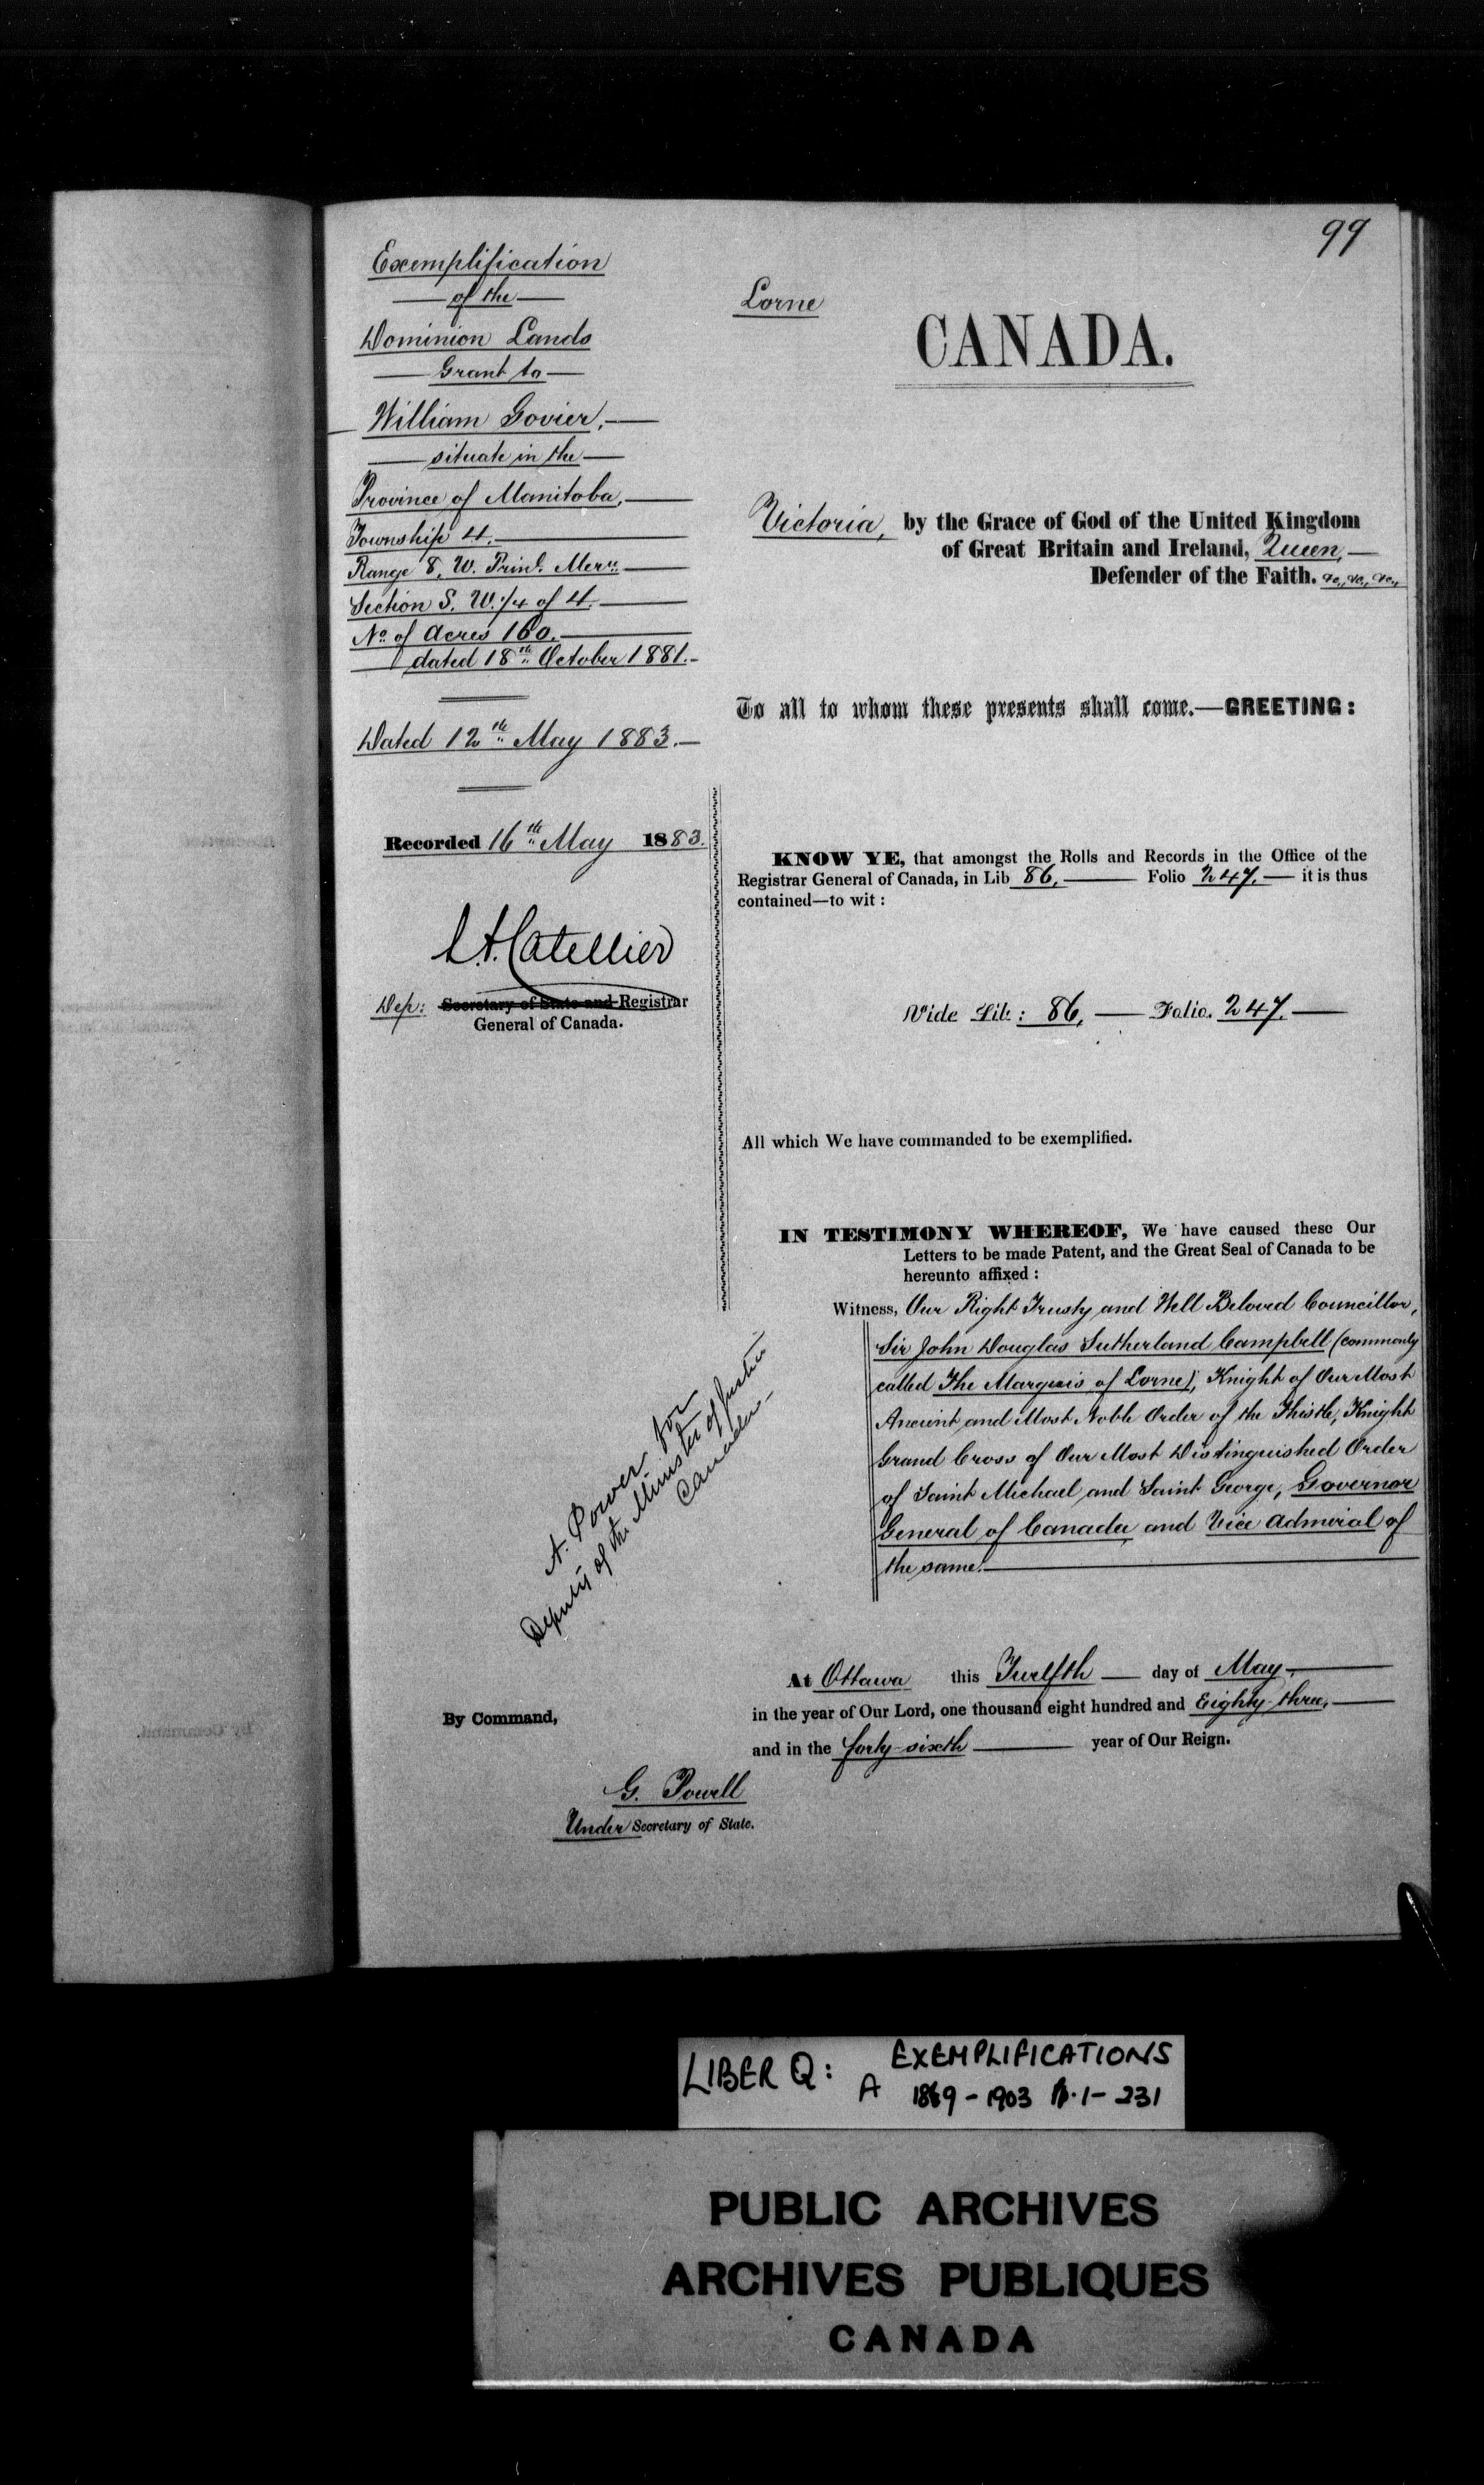 99
Exemplification
of the
Dominion Lands
Grant to
William Govier,
situate in the
Province of Manitoba,
Township 4.
Range 8, W. Prinl. Mern.
Section S. W. 1/4 of 4.
No. of Acres 160.
dated 18th October 1881.
Dated 12th May 1883.
Recorded 16th May 1883.
L.A. Catellier
Dep: Secretary of State and Registrar
General of Canada.
Lorne
CANADA.
Victoria, by the Grace of God of the United Kingdom
of Great Britain and Ireland, Queen,
Defender of the Faith. &c., &c., &c.,
To all to whom these presents shall come.—GREETING:
KNOW YE, that amongst the Rolls and Records in the Office of the
Registrar General of Canada, in Lib 86, Folio 247. it is thus
contained—to wit:
Vide Lib: 86, Folio. 247.
All which We have commanded to be exemplified.
IN TESTIMONY WHEREOF, We have caused these Our
Letters to be made Patent, and the Great Seal of Canada to be
hereunto affixed:
Witness, Our Right Trusty and Well Beloved Councillor,
Sir John Douglas Sutherland Campbell (commonly
called The Marquis of Lorne), Knight of Our Most
Ancient and Most Noble Order of the Thistle, Knight
Grand Cross of Our Most Distinguished Order
of Saint Michael and Saint George, Governor
General of Canada and Vice Admiral of
the same.
A. Power for
Deputy of the Minister of Justice
Canada-
At Ottawa this Twelfth day of May,
in the year of Our Lord, one thousand eight hundred and Eighty-three,
and in the forty-sixth year of Our Reign.
By Command,
G. Powell
Under Secretary of State.
LIBER Q: A EXEMPLIFICATIONS
1869-1903 p.1-231
PUBLIC ARCHIVES
ARCHIVES PUBLIQUES
CANADA